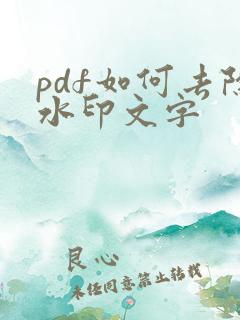 pdf如何去除
水印文字
良心
未经同意禁止转载